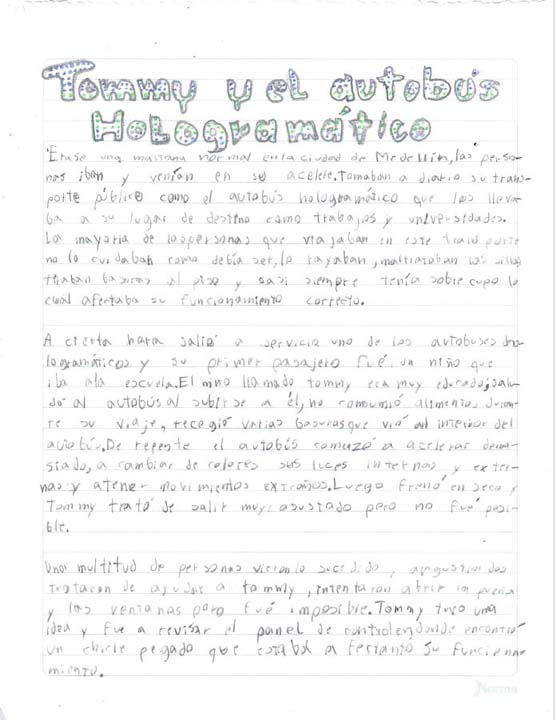 Tommy y el autobús
Hologramático
Erase una mañana normal en la ciudad de Medellín, las perso-
nas iban y venían en su acelere. Tomaban a diario su trans-
porte público como el autobús hologramático que los lleva-
ba a su lugar de destino como trabajos y universidades.
La mayoria de las personas que viajaban en este transporte
no lo cuidaban como debía ser, lo rayaban, maltrataban las sillas
tiraban basuras al piso y casi siempre tenía sobre cupo lo
cual afectaba su funcionamiento correcto.
A cierta hora salió a servicio uno de los autobuses ho-
logramáticos y su primer pasajero fué un niño que
iba ala escuela. El niño llamado tommy era muy educado; salu-
dó al autobús al subirse a él, no consumió alimentos duran-
te su viaje, recogió varias basuras que vió al interior del
autobús. De repente el autobús comenzó a acelerar dema-
siado, a cambiar de colores sus luces internas y exter-
nas y a tener movimientos extraños. Luego frenó en seco y
Tommy trató de salir muy asustado pero no fué posi-
ble.
Una multitud de personas vieron lo sucedido y angustiados
trataron de ayudar a tommy, intentaron abrir la puerta
y las ventanas pero fué imposible. Tommy tuvo una
idea y fue a revisar el panel de control en donde encontró
un chicle pegado que estaba a fectando su funciona-
miento.
Norma